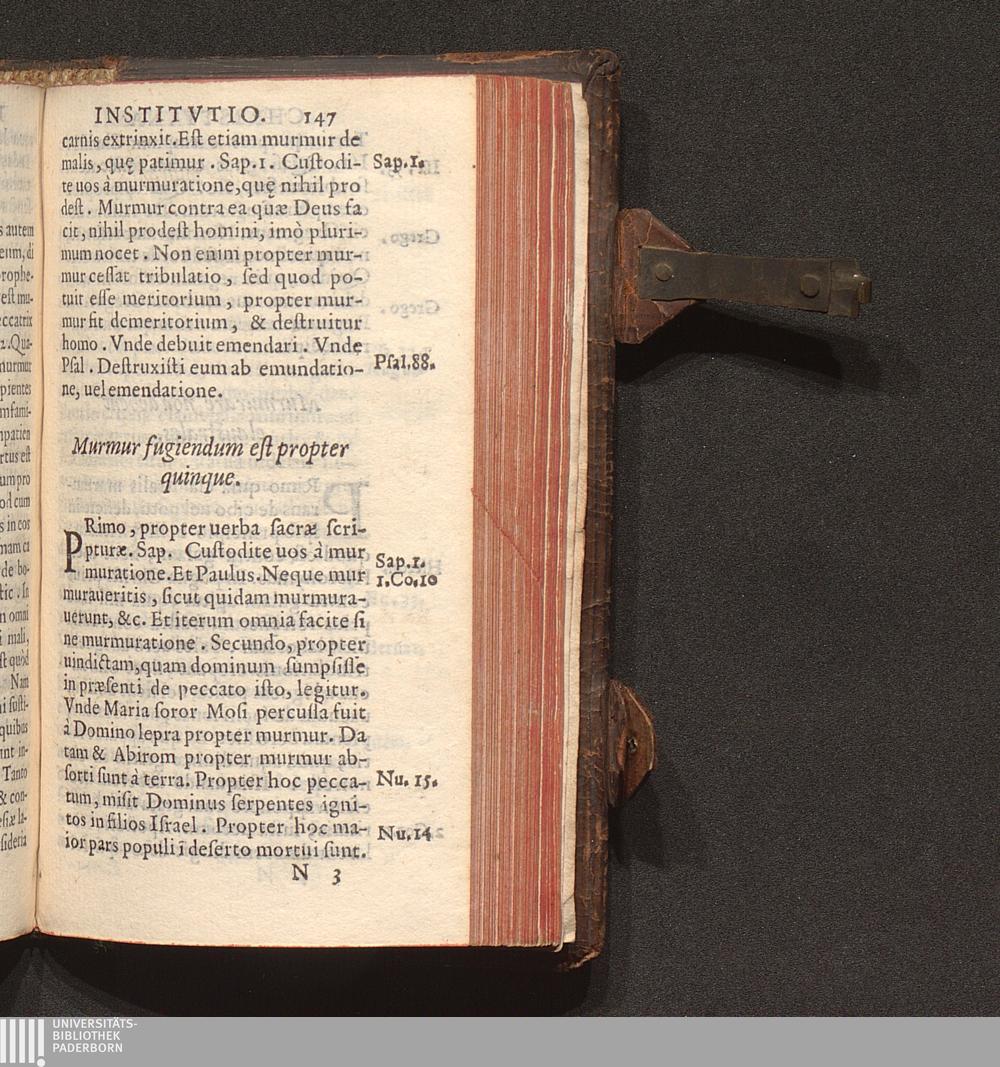 INSTITVTIO. 147
carnis extrinxit. Est etiam murmur de
malis, quę patimur. Sap. 1. Custodi-
te uos à murmuratione, quę nihil pro
dest. Murmur contra ea quæ Deus fa
cit, nihil prodest homini, imò pluri-
mum nocet. Non enim propter mur-
mur cessat tribulatio, sed quod po-
tuit esse meritorium, propter mur-
mur fit demeritorium, & destruitur
homo. Vnde debuit emendari. Vnde
Psal. Destruxisti eum ab emundatio-
ne, uel emendatione.
Sap. 1.
Psal. 88.
Murmur fugiendum est propter
quinque.
PRimo, propter uerba sacræ scri-
pturæ. Sap. Custodite uos à mur
muratione. Et Paulus. Neque mur
muraueritis, sicut quidam murmura-
uerunt, &c. Et iterum omnia facite si
ne murmuratione. Secundo, propter
uindictam, quam dominum sumpsisse
in præsenti de peccato isto, legitur.
Vnde Maria soror Mosi percussa fuit
à Domino lepra propter murmur. Da
tam & Abirom propter murmur ab-
sorti sunt à terra. Propter hoc pecca-
tum, misit Dominus serpentes igni-
tos in filios Israel. Propter hoc ma-
ior pars populi ī deserto mortui sunt.
Sap. 1.
1. Co. 10
Nu. 15.
Nu. 14
N 3
s autem
rophe-
est mu-
murmur
pientes
rtus est
um pro
od cum
s in eos
de bo-
n omni
i mali,
st quòd
Nam
quibus
Tanto
& con-
sideria
UNIVERSITÄTS-
BIBLIOTHEK
PADERBORN